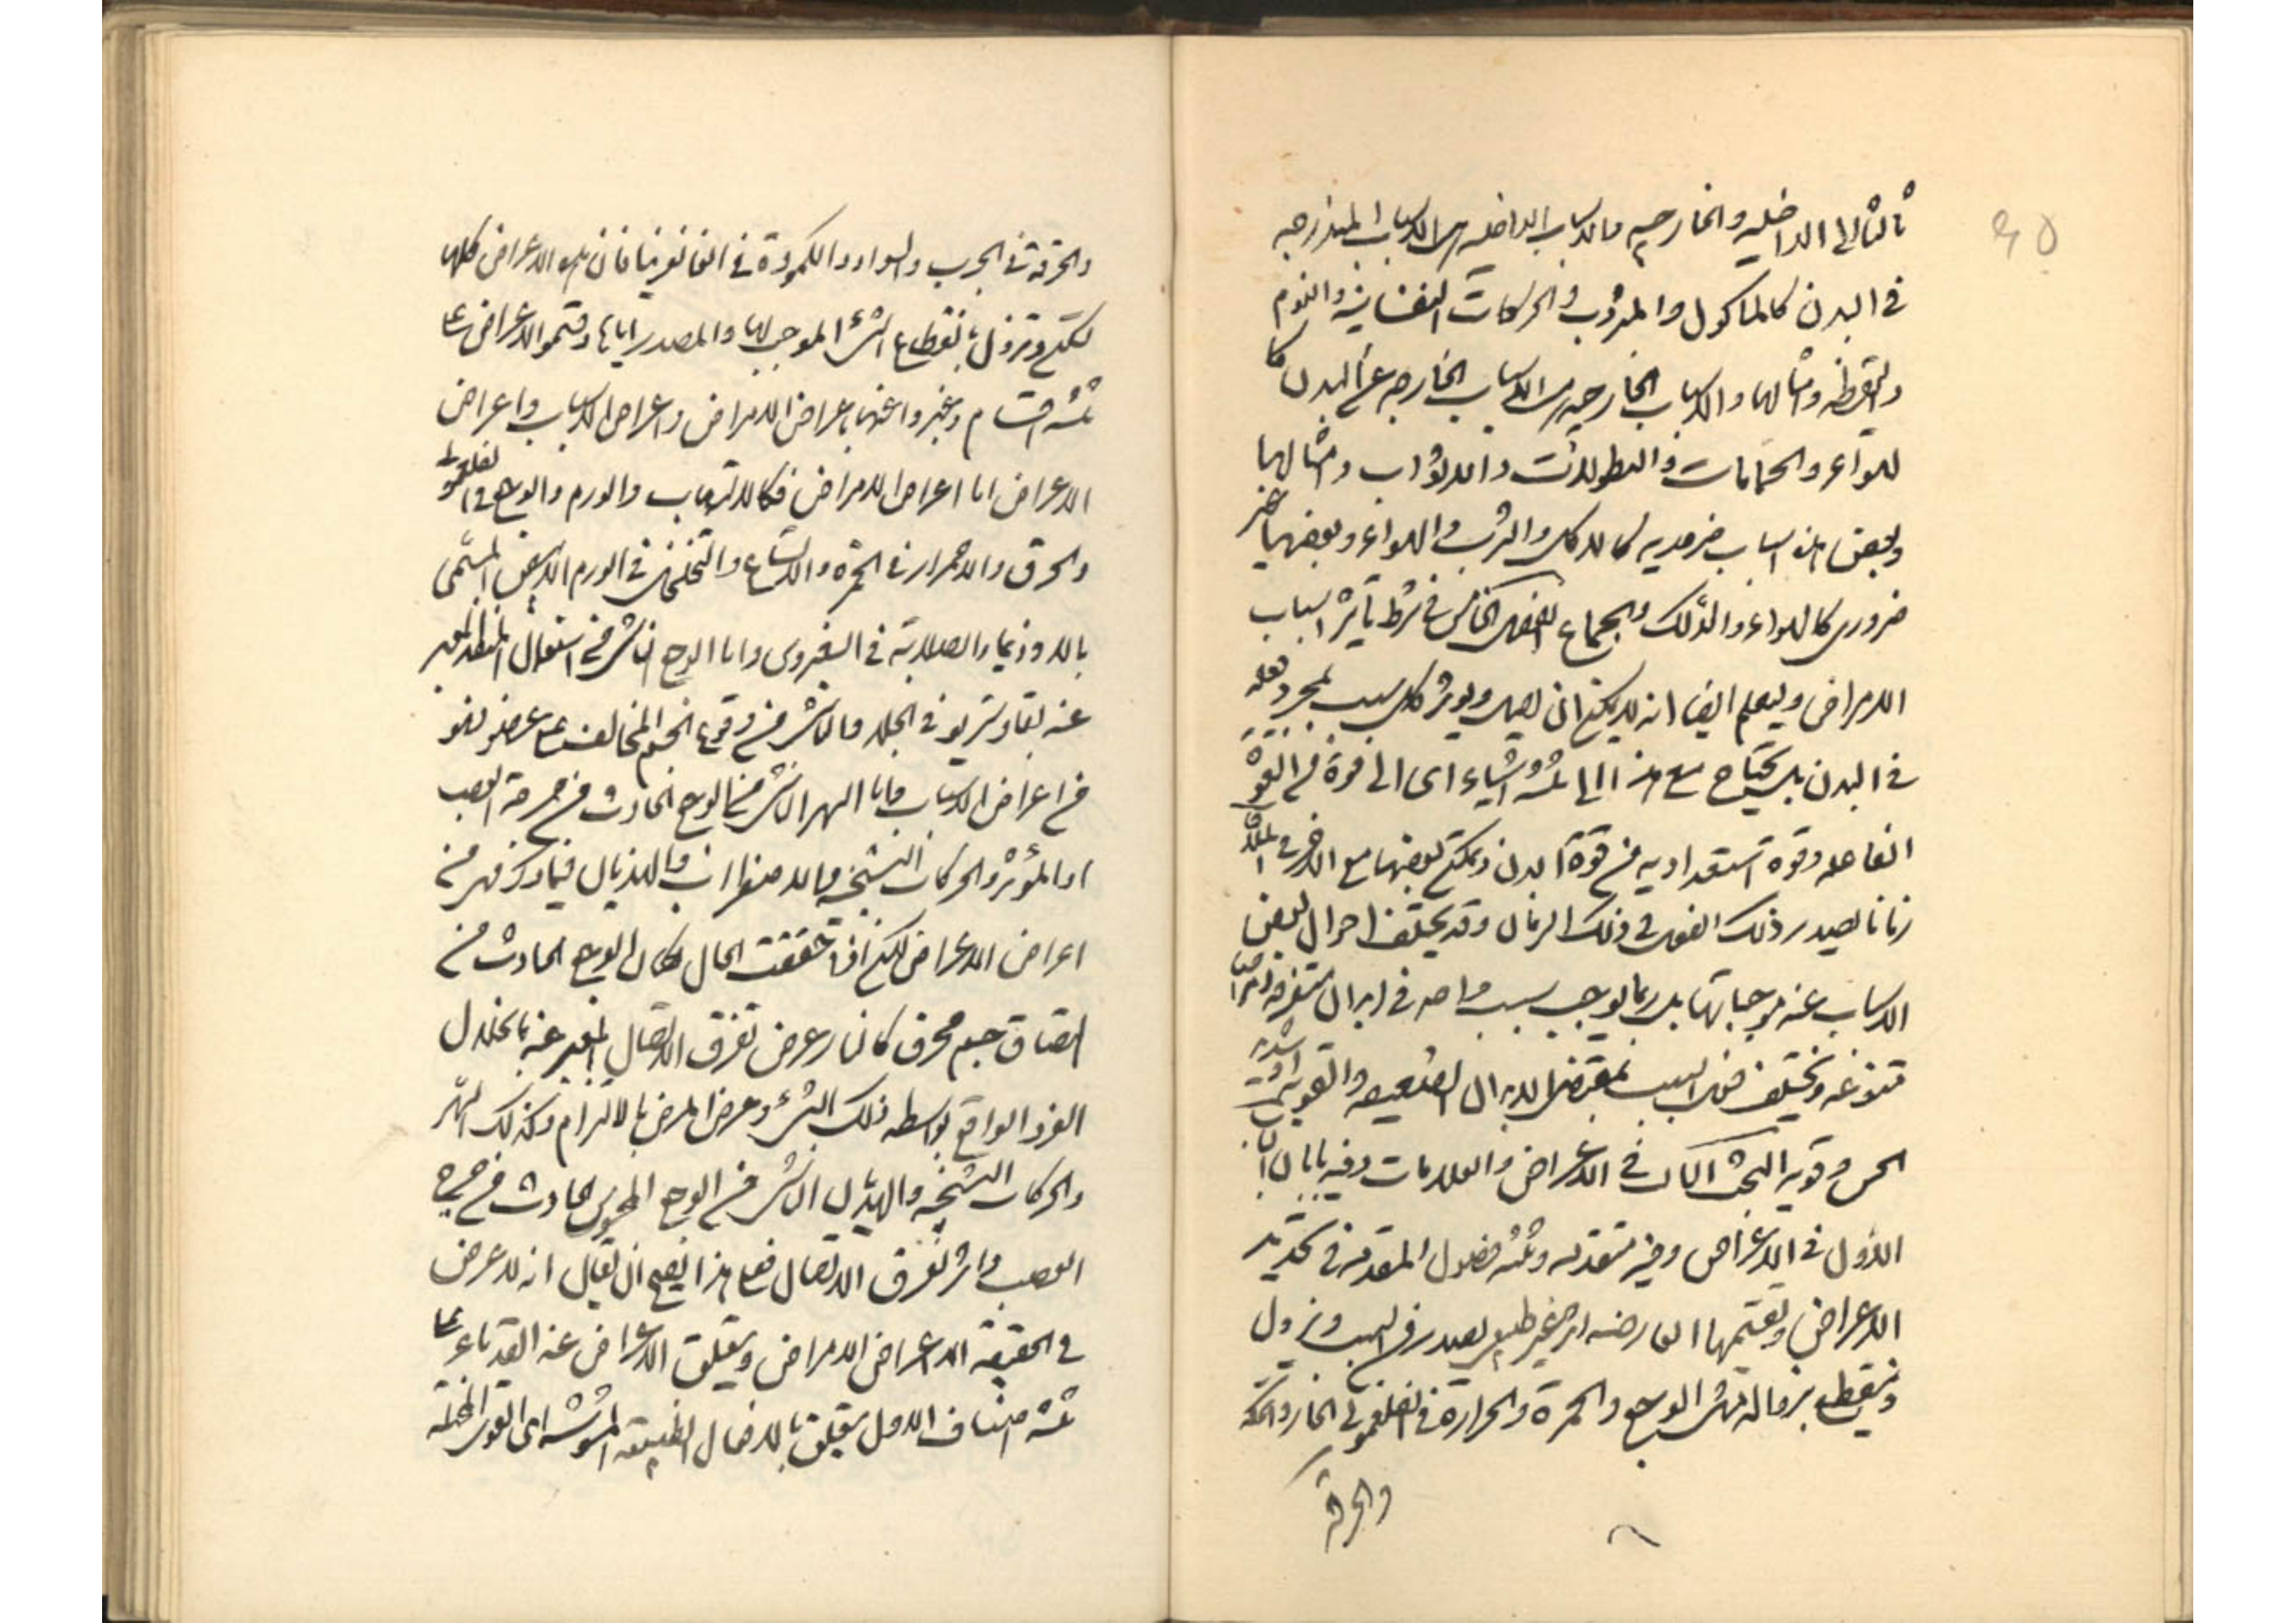 ثالثا الى الداخليه والخارجيه فالاسباب الداخليه هى الاسباب المندرجه
فى البدن كالماكول والمشروب والحركات النفسانيه والنوم
واليقظه وامثالها والاسباب الخارجيه هى الاسباب الخارجه عن البدن كا
لهواء والحمامات والنطولات والاثواب وامثالها
وبعض هذه اسباب ضروريه كالاكل والشرب والهواء وبعضها غير
ضرورى كالهواء والدلك والجماع الفصل الخامس فى شرط تأثير اسباب
الامراض وليعلم ايضا انه لا يمكن ان يصل ويوثر كل سبب بمجرد فعله
فى البدن بل يحتاج مع هذا الى ثلثه اشياء اى الى قوة من القوة
الفاعله وقوة استعداديه من قوة البدن وتمكن بعضها مع الاخر فى
زمانا يصدر ذلك الفعل فى ذلك الزمان وقد يختلف احوال بعض
الاسباب عن موجباتها بل ربما يوجب سبب واحد فى ابدان متفرقه
متنوعه ويختلف فعل السبب بمقتضى الابدان الضعيفه والقويه
الحس وقويه البحث الثالث فى الاعراض والعلامات وفيه بابان
الاول فى الاعراض وفيه مقدمه وثلثه فصول المقدمه فى تحديد
الاعراض وتقسيمها العارضه امر غير طبيعى يصدر من السبب ويزول
وينقطع بزواله مثل الوجع والحمرة والحرارة فى الفلغمونى الحار والحكة
والحرقة
والحرقة فى الجرب والسواد والكمودة فى الغانغرينا فان هذه الاعراض كلها
تسكن وتزول بانقطاع الشئ الموجب لها والمصدر اياها وقسموا الاعراض على
ثلثه اقسام وعبروا عنها باعراض الامراض واعراض الاسباب واعراض
الاعراض اما اعراض الامراض فكالالتهاب والورم والوجع فى الفلغمونى
والحرق والاحمرار فى الحمرة والاتساع والتخلخل فى الورم الابيض المسمى
بالاوذيما والصلابة فى السقيروس واما الوجع الناشى من استعمال المعبر
عنه فى الجلد والناشى من وقوع الجسم المخالف على عضو فهو
من اعراض الاسباب واما السهر الناشى من الوجع الحادث من جرحة العصب
او المؤثر والحركات التشنجيه والاضطراب والهذيان فيما ذكر فهو من
اعراض الاعراض لكن اذا تحققت الحال كان الوجع الحادث من
التصاق جسم محرق كالنار عرض تفرق الاتصال المعبر عنه بانحلال
الفرد الواقع بواسطه ذلك الشئ وعرض المرض بالالتزام وكذلك السهر
والحركات التشنجيه والهذيان الناشى من الوجع المحسوس الحادث من جرح
العصب واثر تفرق الاتصال فعلى هذا يصح ان يقال انه لا عرض
فى الحقيقه الا اعراض الامراض ويتعلق الاعراض عند القدماء على
ثلثه اصناف الاول يتعلق بالافعال الطبيعيه المشوشه اى القوى المختله